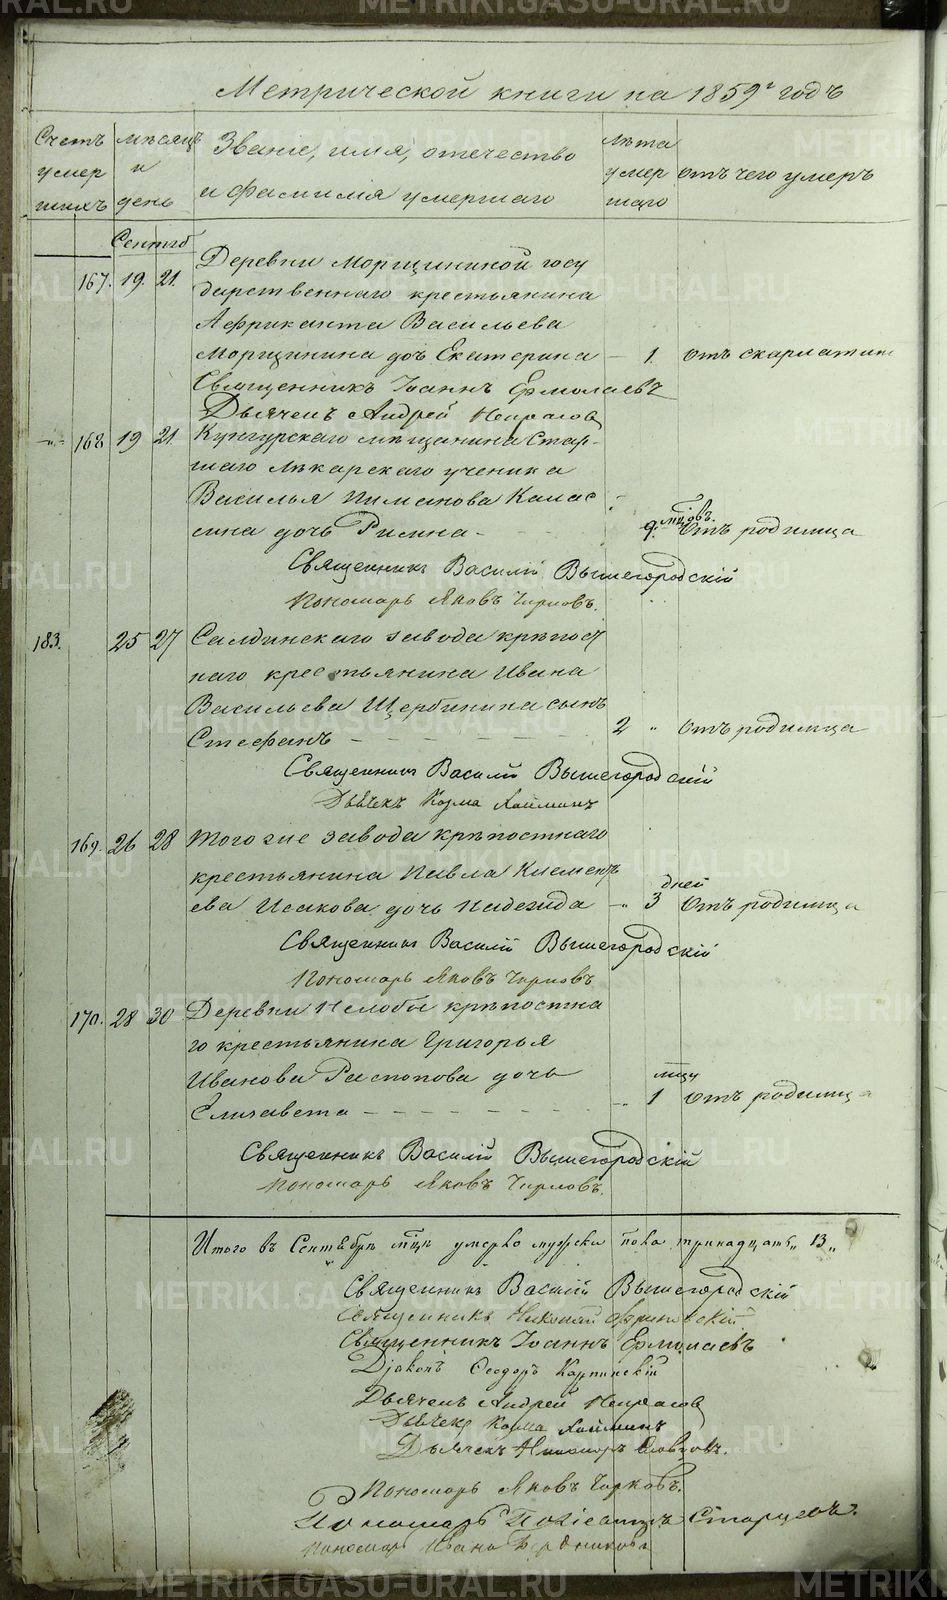 Метрической книги на 1859й годъ
Счетъ умер шихъ
мѣсяцъ и день
Званіе, имя, отечество и фамилія умершаго
лѣта умер шаго
отъ чего умеръ
Сентяб
Деревни Морщининой госу
167. 19. 21. дарственнаго крестьянина
Африканта Васильева
Морщинина дочь Екатерина — 1. отъ скарлатины
Священникъ Іоаннъ Ермолаевъ
Дьячекъ Андрей Некрасов
168 19 21. Кунгурскаго мѣщанина Стар-
шаго лѣкарскаго ученика
Василья Пиманова Калас
ина дочь Римма - 9. мцовъ. Отъ родимца
Священникъ Василій Вышегородскій
Пономарь Яковъ Чирковъ.
183. 25 27 Салдинскаго завода крѣпост
наго крестьянина Ивана
Васильева Щербинина сынъ
Стефанъ - - - 2 " Отъ родимца
Священникъ Василій Вышегородскій
Дьячекъ Козма
169. 26 28 Того же завода крѣпостнаго
крестьянина Павла Климент
ева Исакова дочь Надежда — " 3 дней Отъ родимца
Священникъ Василій Вышегородскій
Пономарь Яковъ Чирковъ
170. 28 30 Деревни Нелобы крѣпостна
го крестьянина Григорья
Иванова Распопова дочь
Елизавета - - - " 1 мцу Отъ родимца
Священникъ Василій Вышегородскій
Пономарь Яковъ Чирковъ.
Итого въ Сентябрѣ мцѣ умерло мужска пола тринадцать „ 13 „
Священникъ Василій Вышегородскій
Священникъ Николай
Священникъ Іоаннъ Ермолаевъ
Діаконъ Ѳеодоръ Карпинскій
Дьячекъ Андрей Некрасов
Дьячекъ Козма
Дьячекъ Словцовъ.
Пономарь Яковъ Чирковъ.
Пономарь Старцевъ.
Пономарь Иванъ Бердниковъ
METRIKI.GASO-URAL.RU